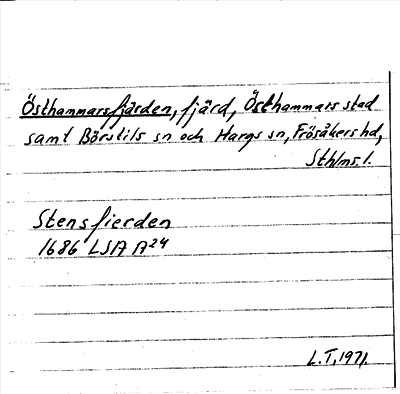 Östhammarsfjärden, fjärd, Östhammars stad
samt Börstils sn och Hargs sn, Frösåkers hd,
Sthlms l.
Stensfierden
1686 LSA A24
L.T. 1971.